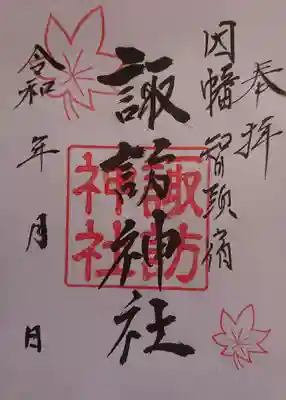 奉拝
因幡智頭宿
諏訪神社
諏訪
神社
令和 年 月 日